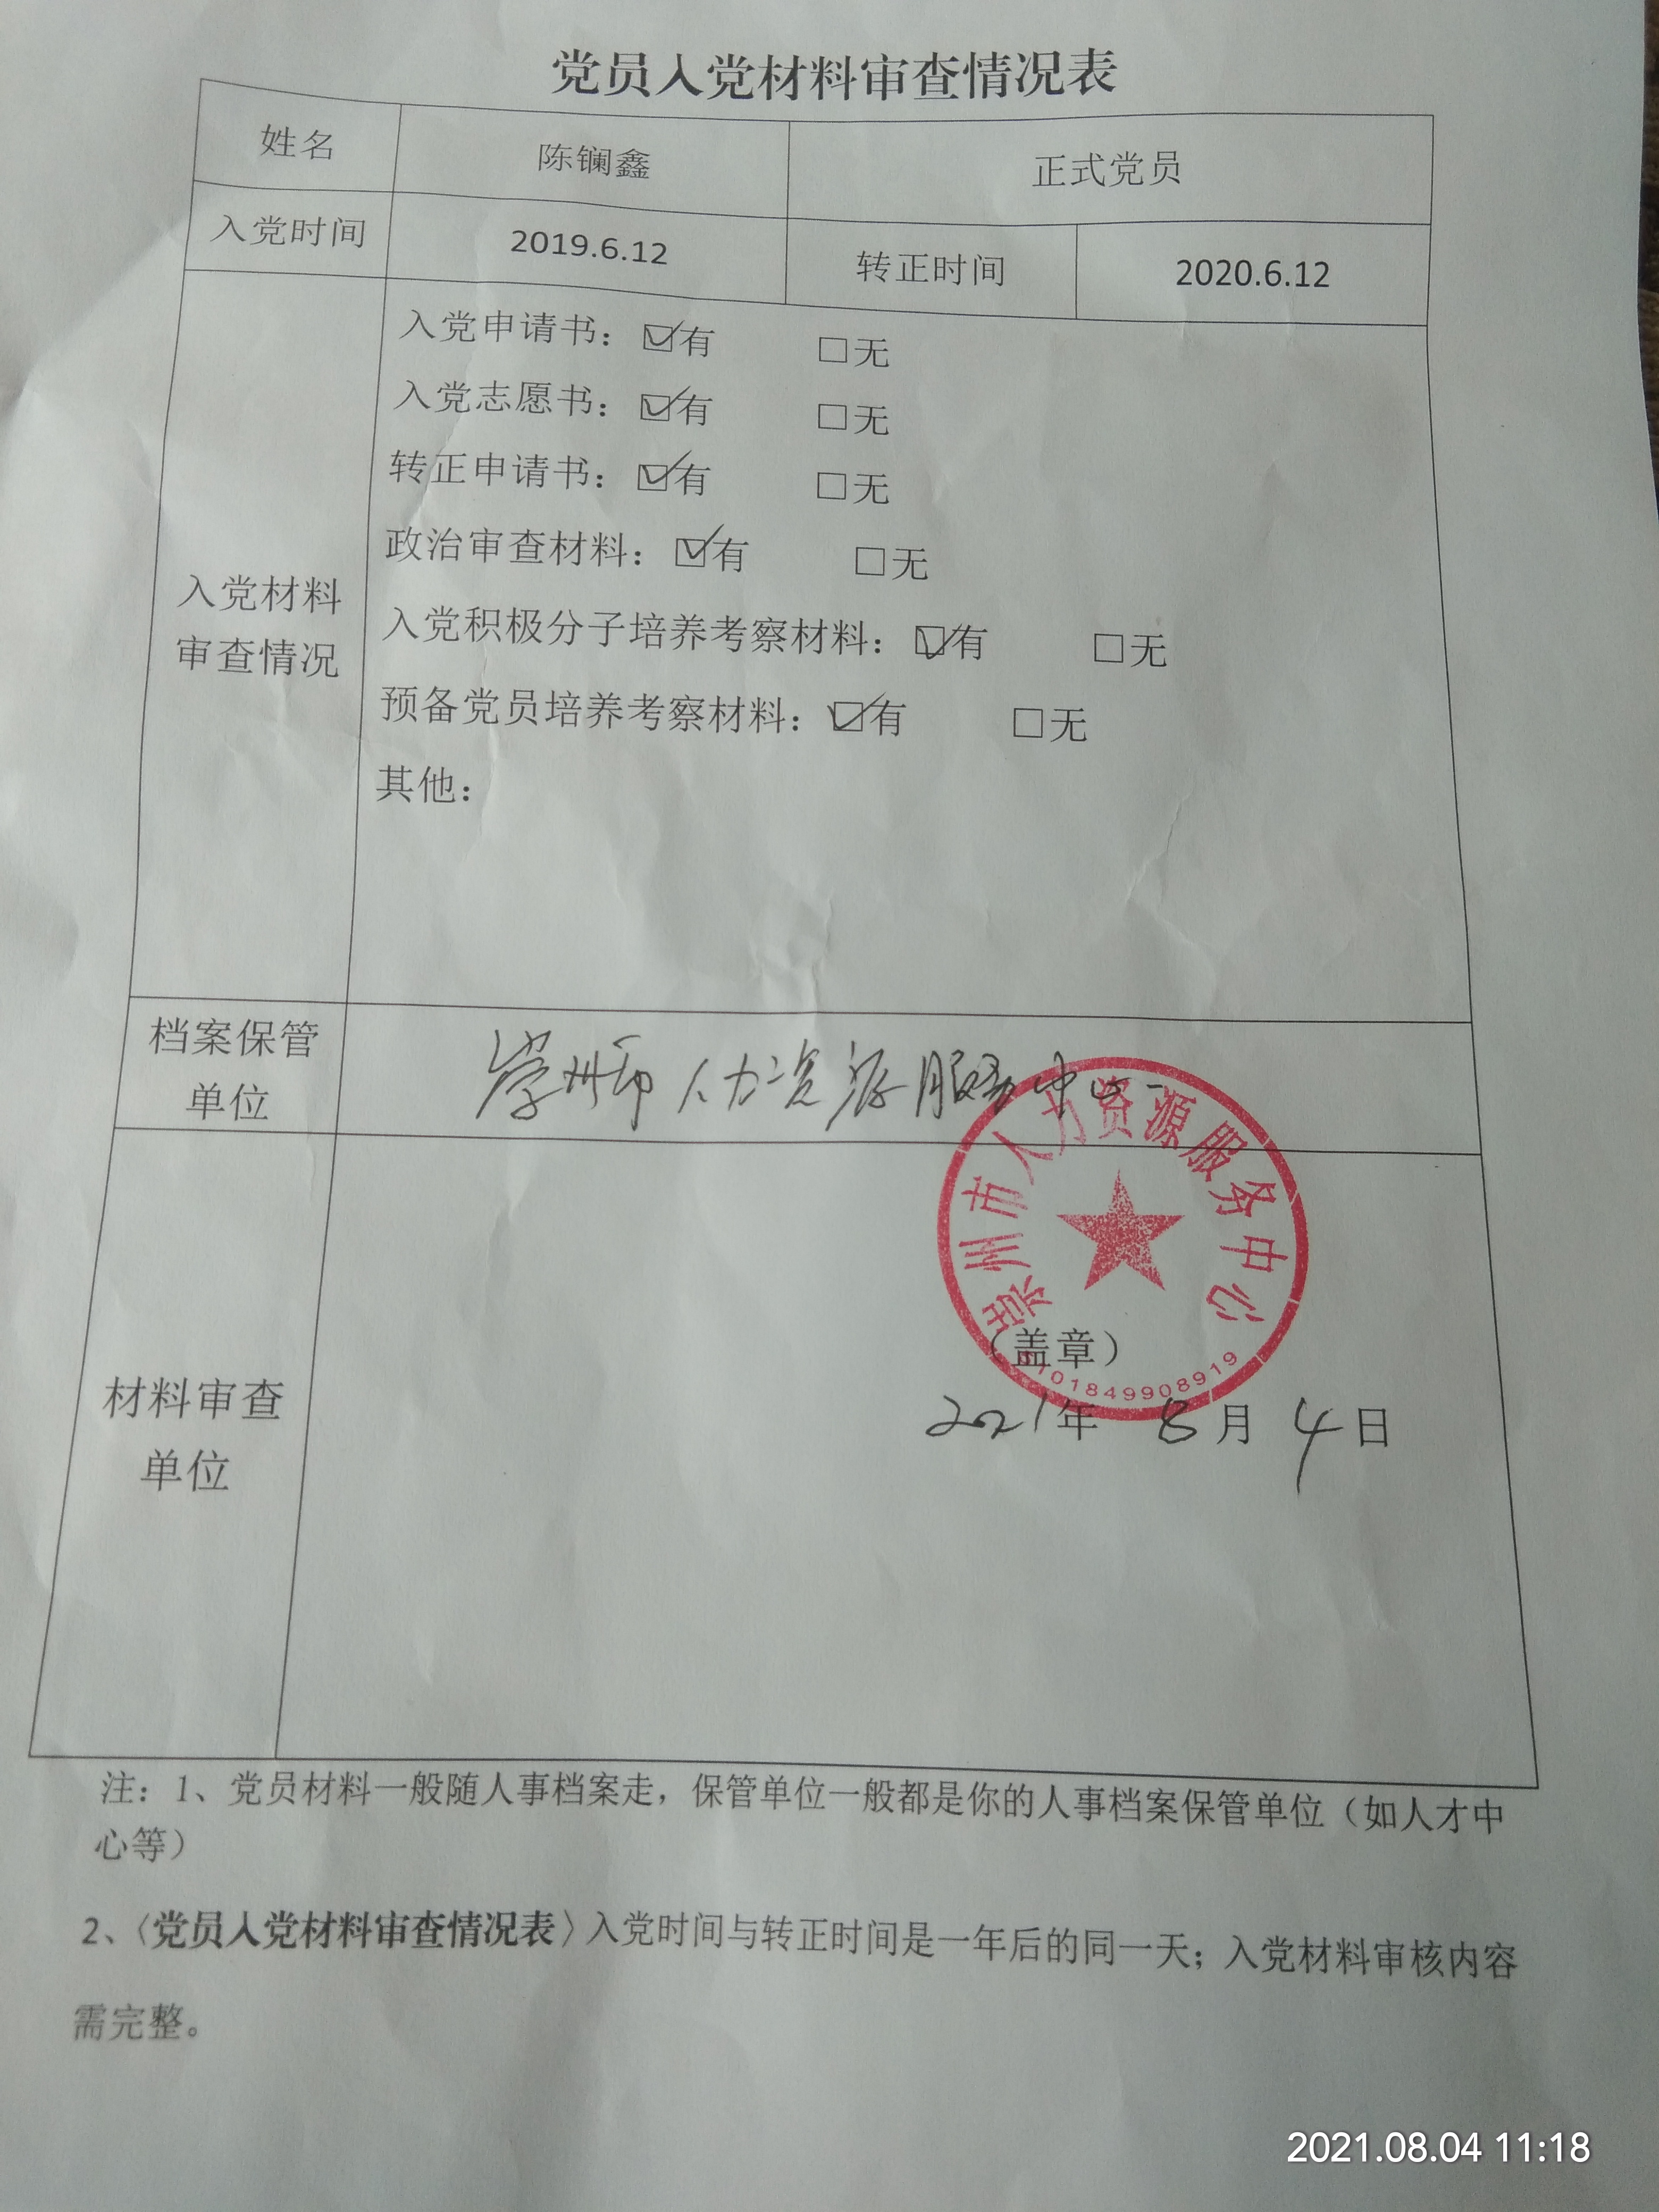 党员入党材料审查情况表
姓名 陈镧鑫 正式党员
入党时间 2019.6.12 转正时间 2020.6.12
入党申请书：☑有 □无
入党志愿书：☑有 □无
转正申请书：☑有 □无
政治审查材料：☑有 □无
入党材料
审查情况
入党积极分子培养考察材料：☑有 □无
预备党员培养考察材料：☑有 □无
其他：
档案保管
单位
崇州市人力资源服务中心
崇州市人力资源服务中心
材料审查
单位
（盖章）
5101849908919
2021年 8月 4日
注：1、党员材料一般随人事档案走，保管单位一般都是你的人事档案保管单位（如人才中
心等）
2、〈党员入党材料审查情况表〉入党时间与转正时间是一年后的同一天；入党材料审核内容
需完整。
2021.08.04 11:18